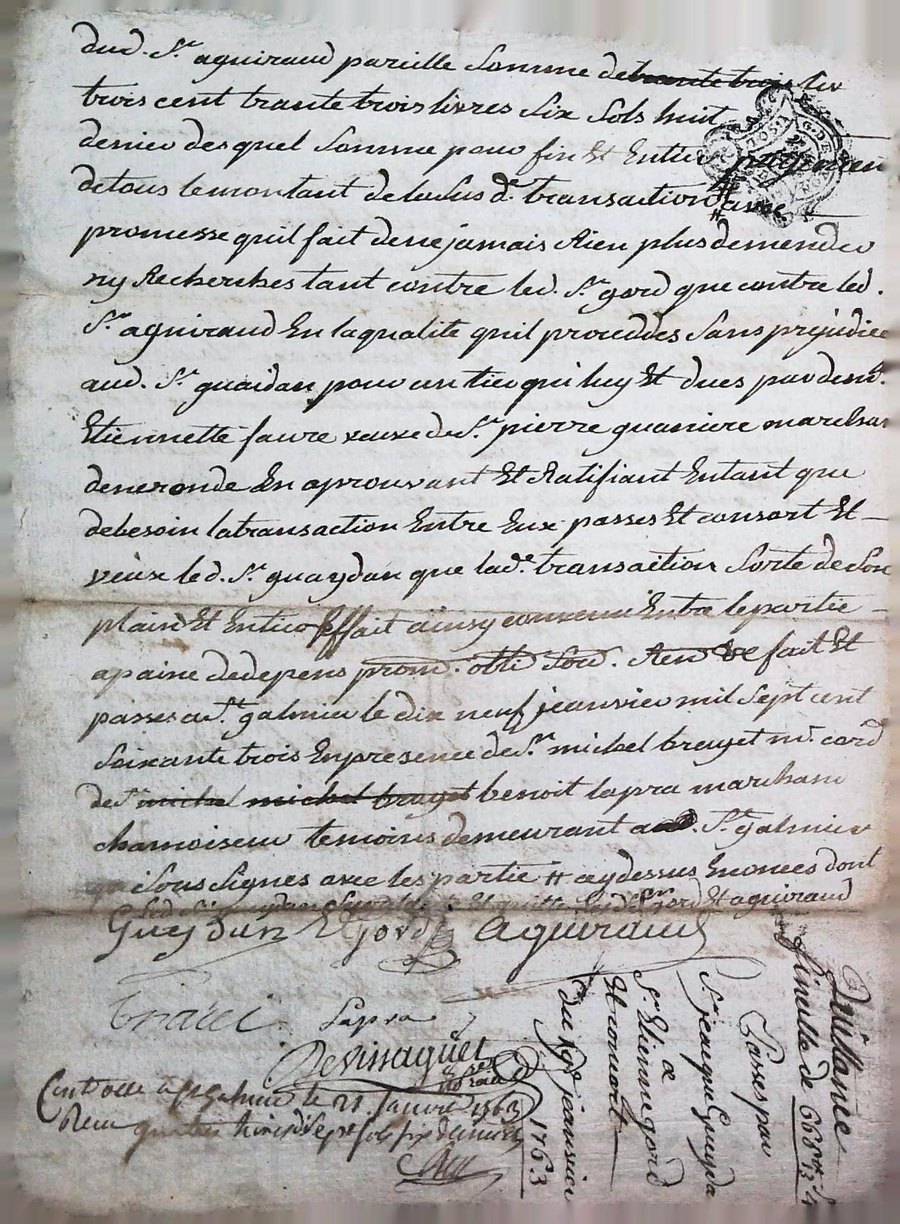 dud. Sr aguiraud pareille Somme de trante trois liv
trois cent trante trois livres Six Sols huit
denier desquel Somme pour fin Et Entier
de tous le montant de la Sus d. transaction avec
promesse quil fait de ne jamais Rien plus demender
ny Recherches tant contre led. Sr gord que contre led.
Sr aguiraud En la qualité quil proceddes Sans prejudice
aud. Sr guaidan pour un tier qui luy Et dues par dem.
Etiennette faure veuve de Sr pierre guaniere marchan
de neronde En aprouvant Et Ratifiant Entant que
de besoin la transaction Entre Eux passes Et consort Et
veux led. Sr guaydan que lad. transaction Sorte de Son
plain Et Entier Effait ainsy convenu Entre le partie
a paine de depens prom. obli Soû. Ren fait Et
passes a St galmier le dix neuf jeanvier mil Sept cent
Soixante trois En presence de Sr michel brayet mr cord
de Sr michel michel brayet benoit lapra marchand
chamoiseur temoins demeurant aud. St galmier
Sous Signes avec les partie # cy dessus Enonces dont
led Sr guaydan Et quitte lesd Sr gord Et aguiraud
Guaydan E Gord Aguiraud
Lapra
Devissaguet
Controllé a St Galmier le 21 Janvier 1763
Recu quatre livres dix sept sols six deniers
Quittance
finalle de 668
Passes par
Sr jeaque Guayda
a
Sr Etienne gord
Et consort
Du 19e jeanvier
1763